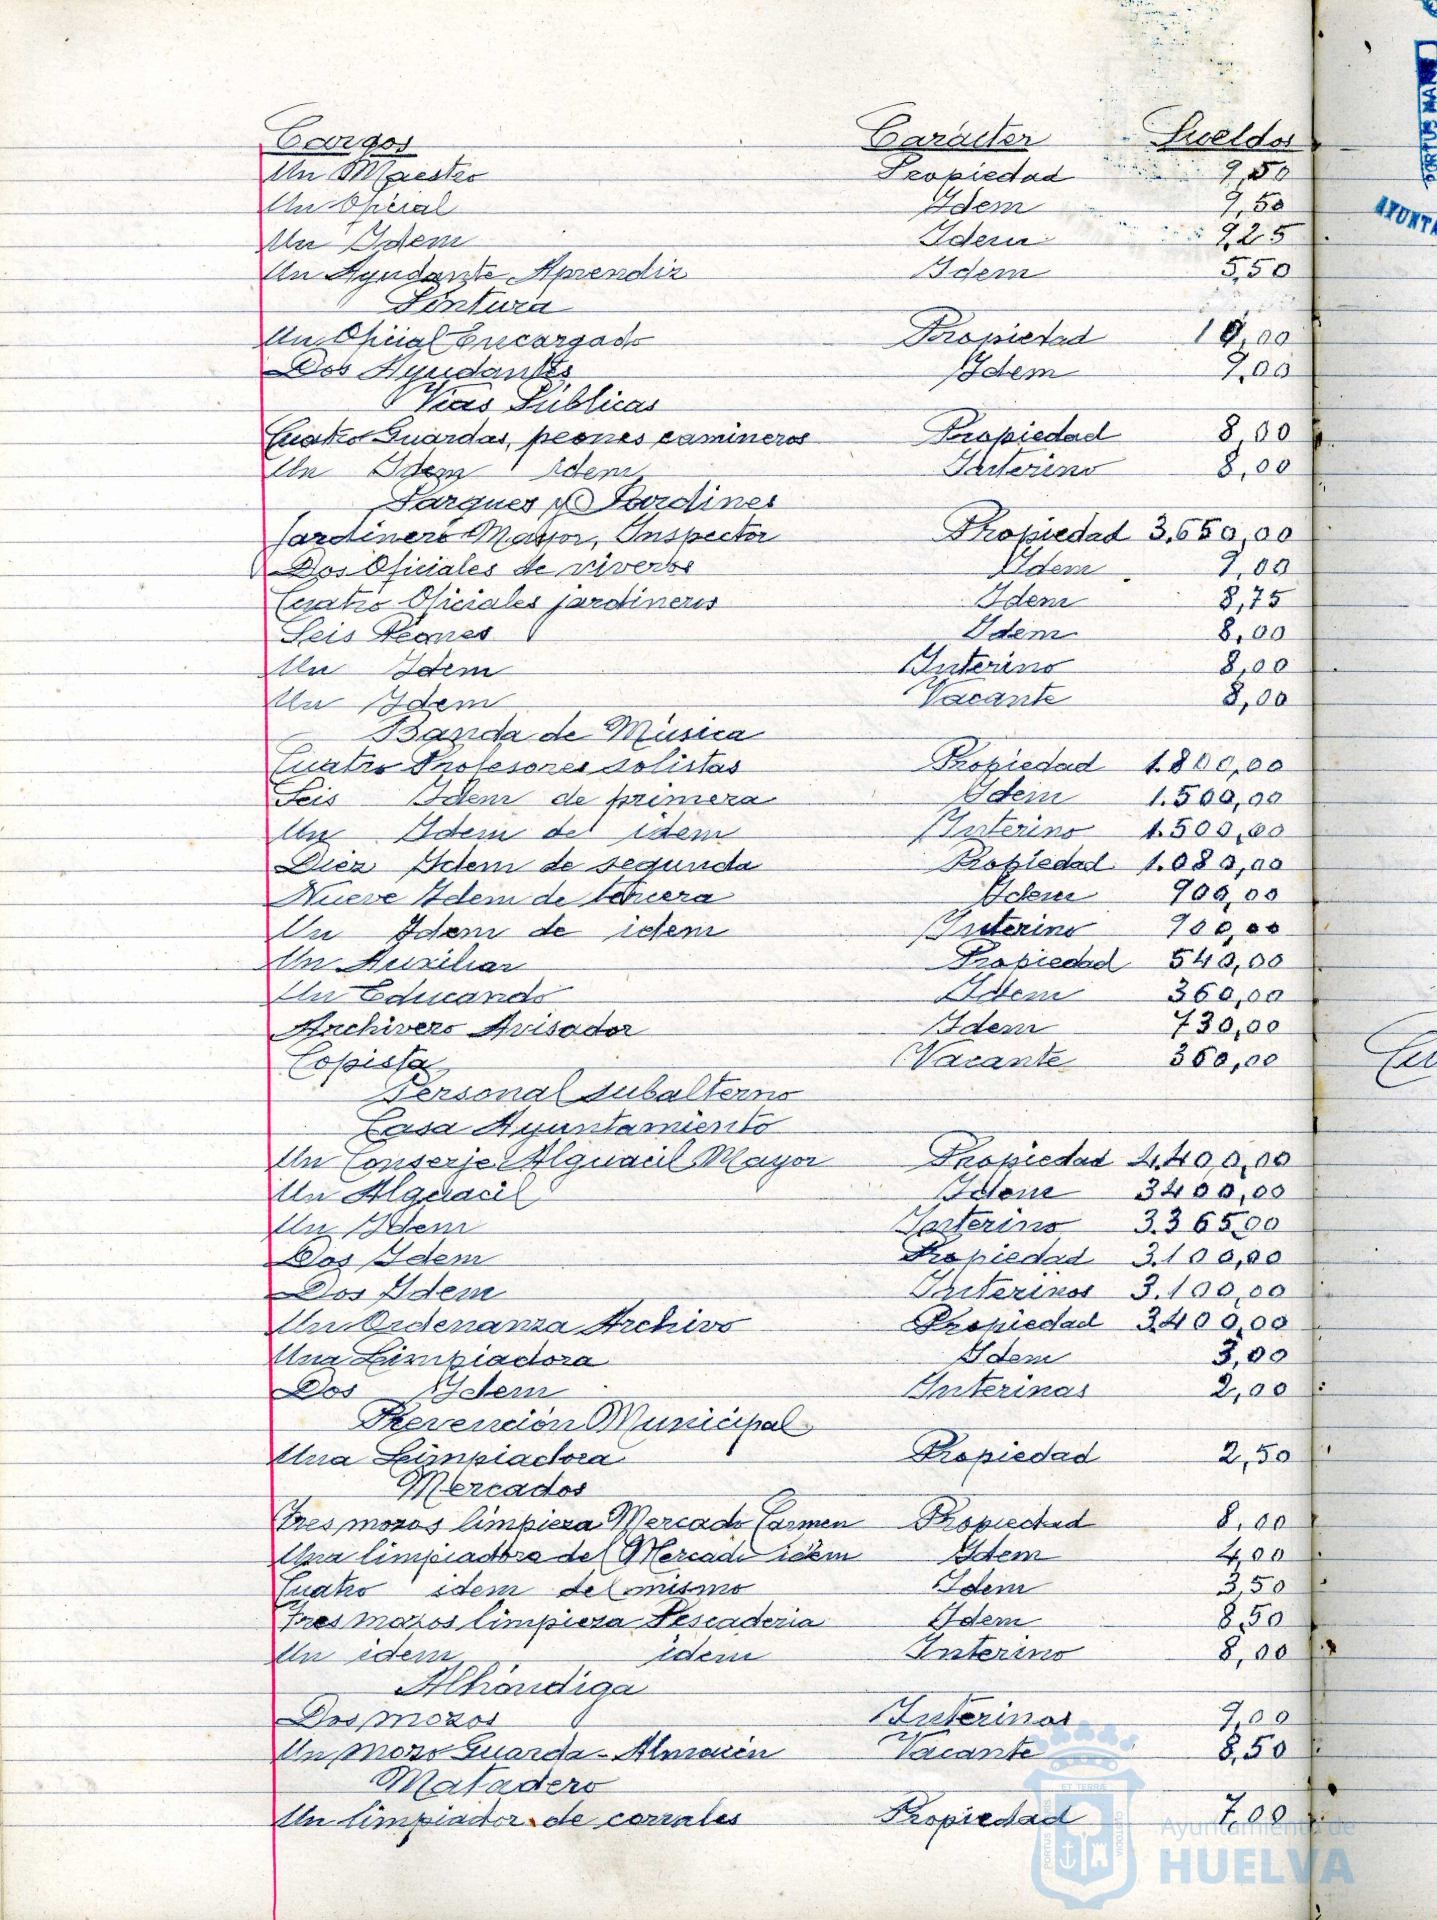 Cargos Carácter Sueldos
Un Maestro Propiedad 9,50
Un Oficial Idem 9,50
Un Idem Idem 9,25
Un Ayudante Aprendiz Idem 5,50
Pintura
Un Oficial Encargado Propiedad 10,00
Dos Ayudantes Idem 9,00
Vías Públicas
Cuatro Guardas, peones camineros Propiedad 8,00
Un Idem idem Interino 8,00
Parques y Jardines
Jardinero Mayor, Inspector Propiedad 3.650,00
Dos Oficiales de viveros Idem 9,00
Cuatro Oficiales jardineros Idem 8,75
Seis Peones Idem 8,00
Un Idem Interino 8,00
Un Idem Vacante 8,00
Banda de Música
Cuatro Profesores solistas Propiedad 1.800,00
Seis Idem de primera Idem 1.500,00
Un Idem de idem Interino 1.500,00
Diez Idem de segunda Propiedad 1.080,00
Nueve Idem de tercera Idem 900,00
Un Idem de idem Interino 900,00
Un Auxiliar Propiedad 540,00
Un Educando Idem 360,00
Archivero Avisador Idem 730,00
Copista Vacante 360,00
Personal subalterno
Casa Ayuntamiento
Un Conserje Alguacil Mayor Propiedad 4.400,00
Un Alguacil Idem 3400,00
Un Idem Interino 3.365,00
Dos Idem Propiedad 3.100,00
Dos Idem Interinos 3.100,00
Un Ordenanza Archivo Propiedad 3.400,00
Una Limpiadora Idem 3,00
Dos Idem Interinas 2,00
Prevención Municipal
Una Limpiadora Propiedad 2,50
Mercados
Tres mozos limpieza Mercado Carmen Propiedad 8,00
Una limpiadora del Mercado idem Idem 4,00
Cuatro idem del mismo Idem 3,50
Tres mozos limpieza Pescaderia Idem 8,50
Un idem idem Interino 8,00
Alhóndiga
Dos mozos Interinos 9,00
Un mozo Guarda-Almacén Vacante 8,50
Matadero
Un limpiador de corrales Propiedad 7,00
Ayuntamiento de
HUELVA